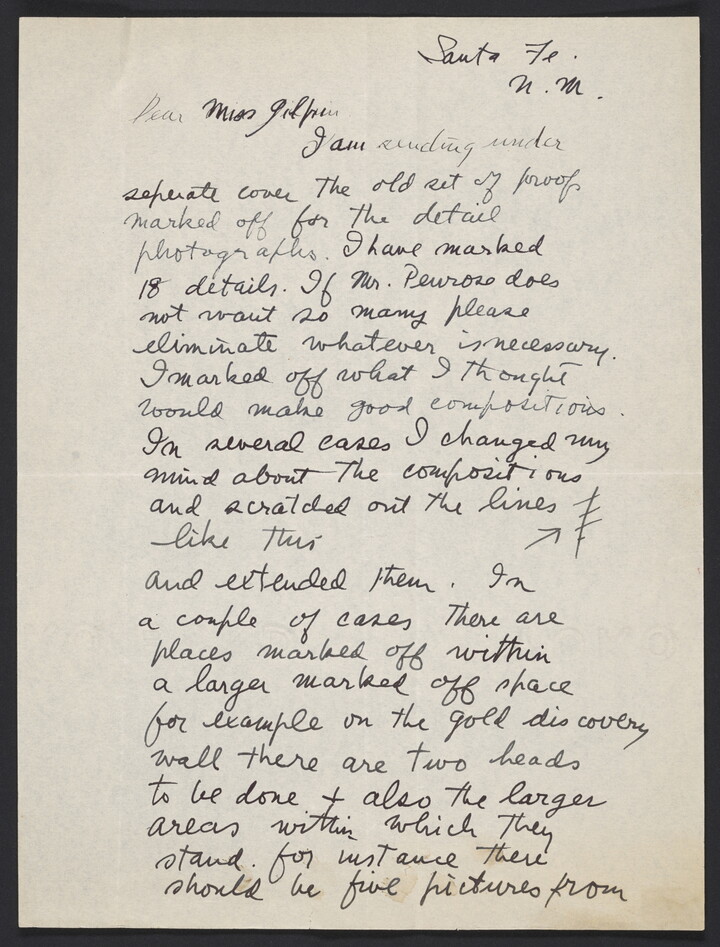 Santa Fe.
N. M.
Dear Miss Gilpin
I am sending under
seperate cover the old set of proofs
marked off for the detail
photographs. I have marked
18 details. If Mr. Penrose does
not want so many please
eliminate whatever is necessary.
I marked off what I thought
would make good compositions.
In several cases I changed my
mind about the compositions
and scratched out the lines
like this
and extended them. In
a couple of cases there are
places marked off within
a larger marked off space
for example on the gold discovery
wall there are two heads
to be done + also the larger
areas within which they
stand. for instance there
should be five pictures from